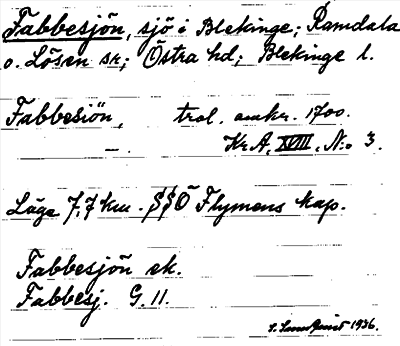 Fabbesjön, sjö i Blekinge; Ramdala
o. Lösen sn; Östra hd; Blekinge l.
Fabbesiön, trol. omkr. 1700.
Kr. A. XVIII, N:o 3.
Läge 7,7 km. SSÖ Flymens kap.
Fabbesjön ek.
Fabbesj. G. 11.
1936.